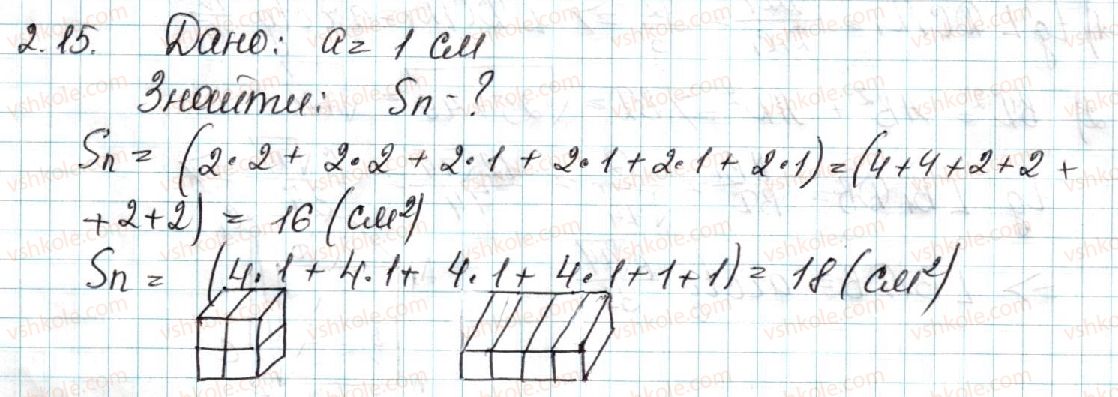 2.15. Дано: a = 1 см
Знайти: Sn - ?
Sn = (2·2 + 2·2 + 2·1 + 2·1 + 2·1 + 2·1) = (4 + 4 + 2 + 2 +
+ 2 + 2) = 16 (см²)
Sn = (4·1 + 4·1 + 4·1 + 4·1 + 1 + 1) = 18 (см²)